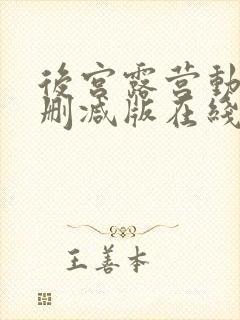 後宫露营動
删减版在綫
王善本